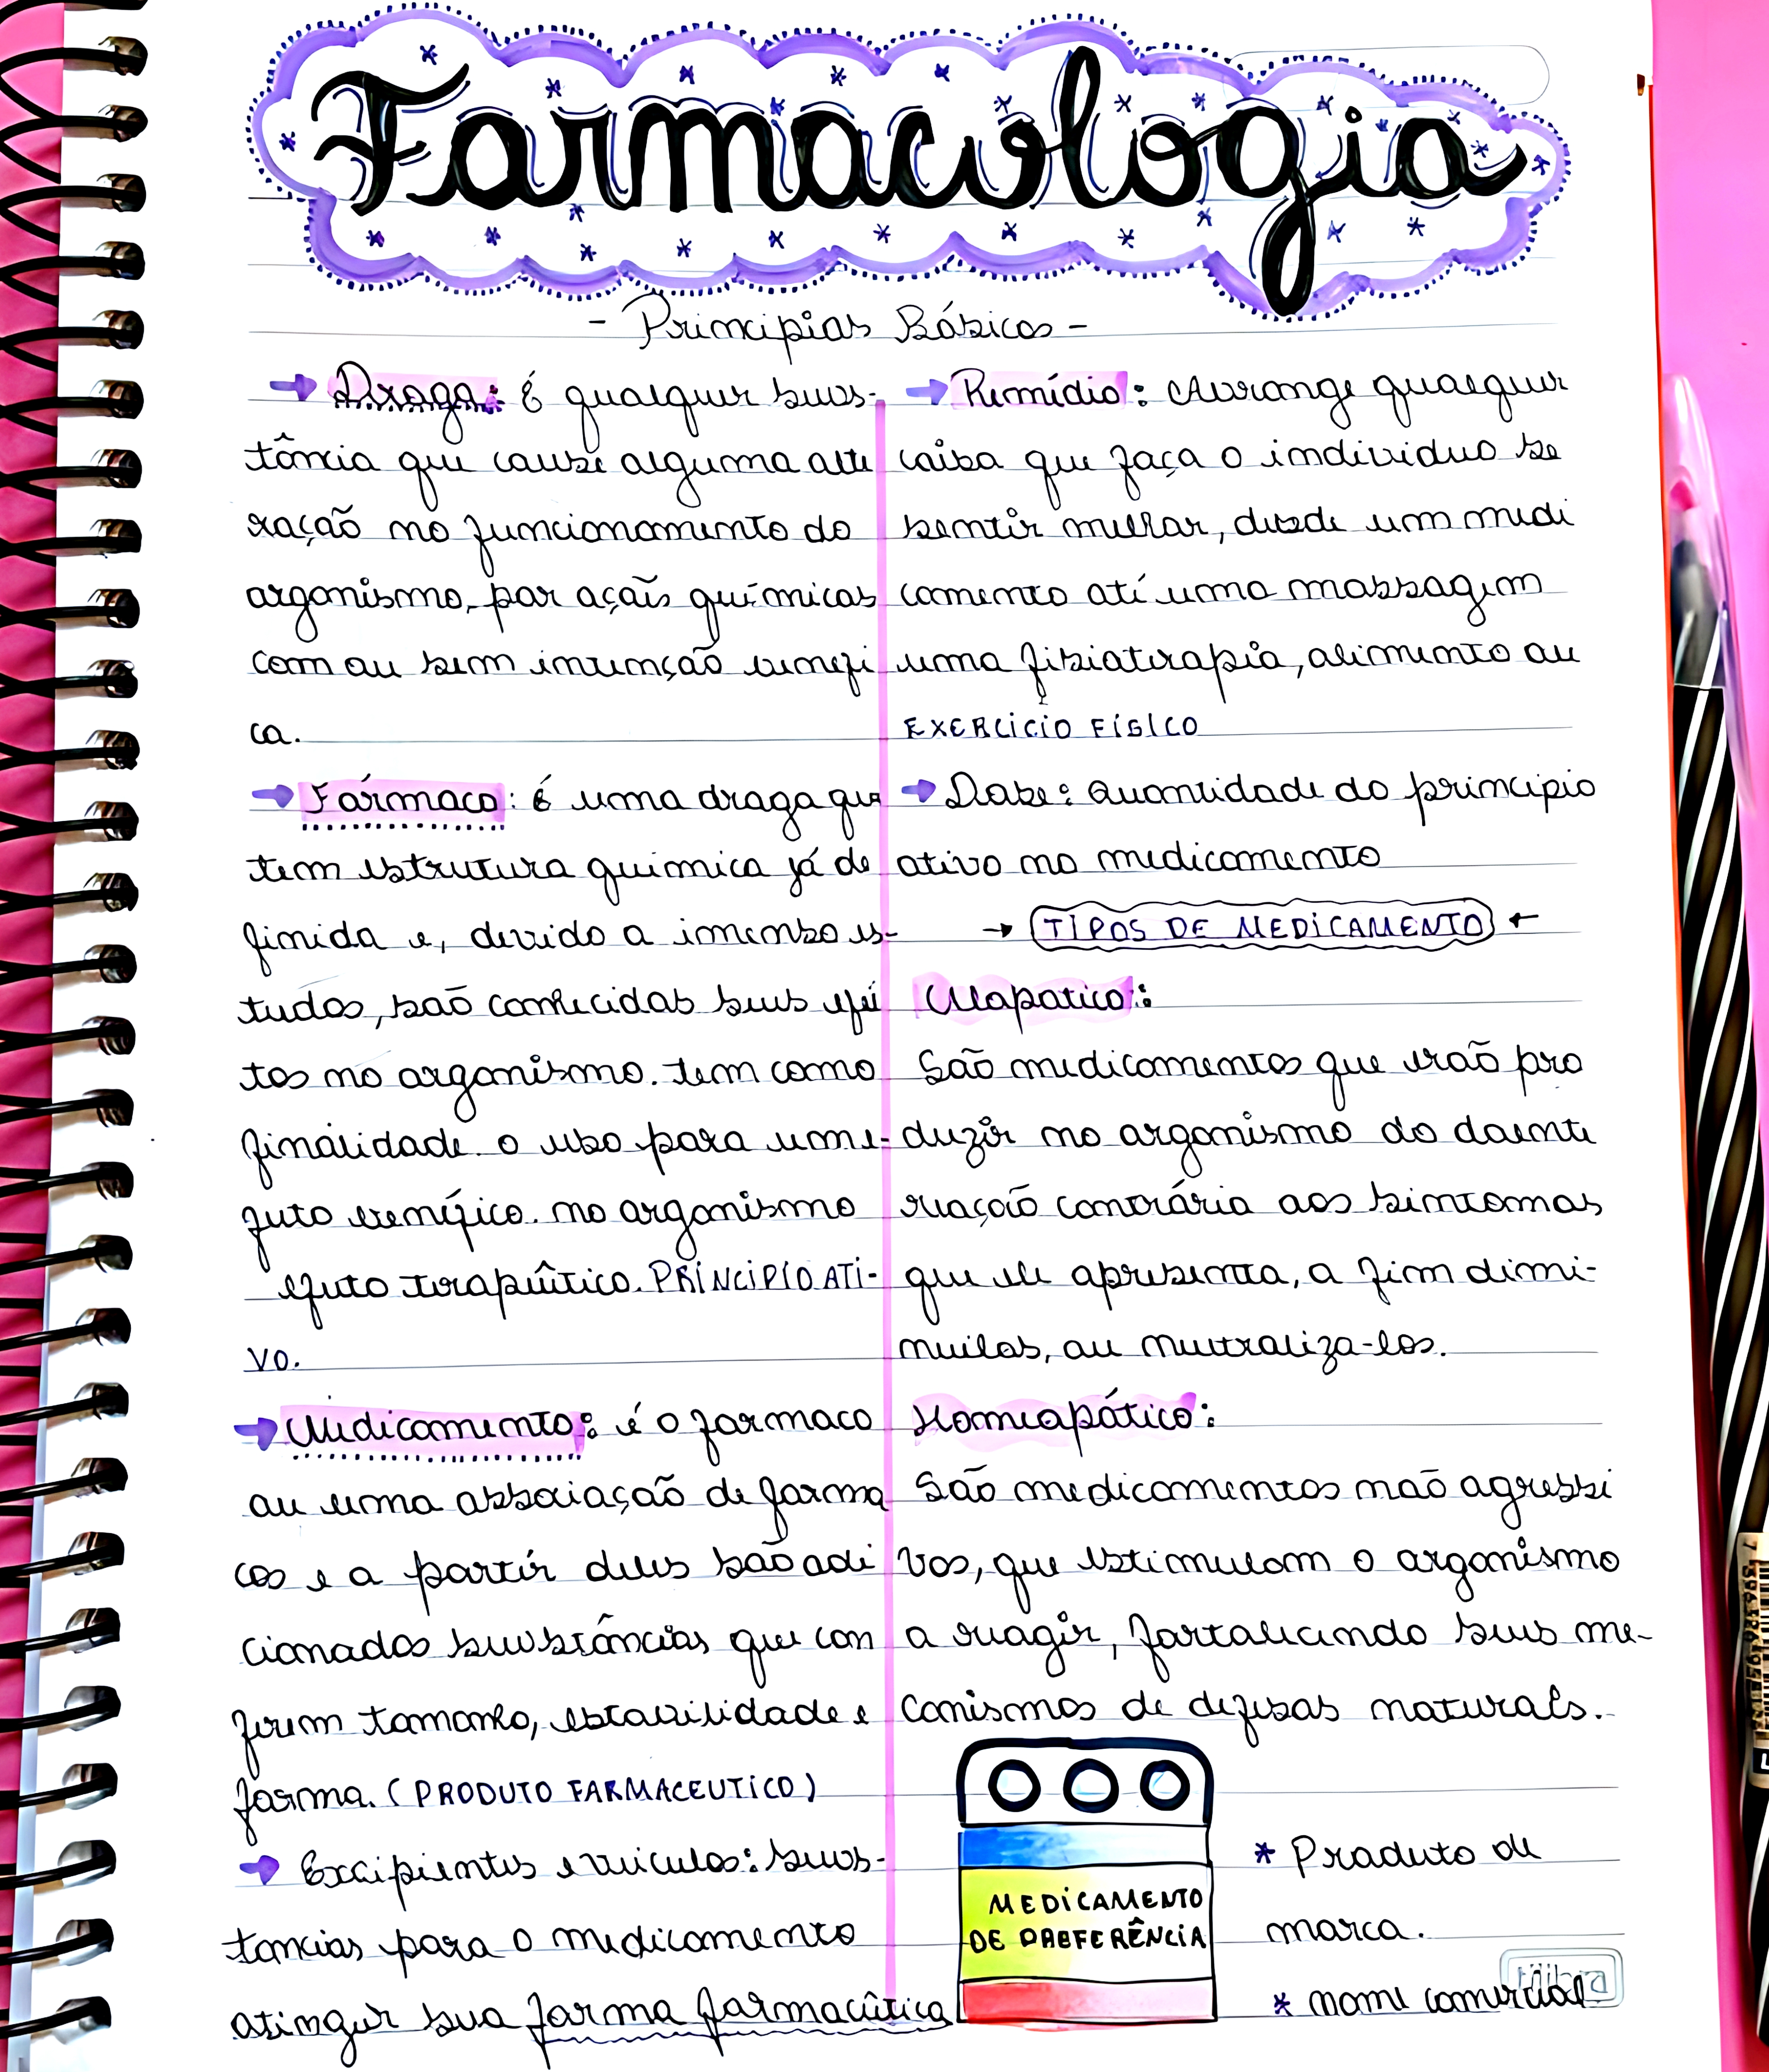 Farmacologia
- Princípios Básicos -
→ Droga: É qualquer subs-
tância que cause alguma alte
ração no funcionamento do
organismo, por ações químicas
com ou sem intenção benéfi
ca.
→ Fármaco: é uma droga que
tem estrutura química já de
finida e, devido a imenso es-
tudos, são conhecidas seus efei
tos no organismo. tem como
finalidade o uso para um e-
feito benéfico no organismo
efeito terapêutico. PRÍNCIPIO ATI-
VO.
→ Medicamento: é o farmaco
ou uma associação de farma
cos e a partir deles são adi
cionados substâncias que con
ferem tamanho, estabilidade e
forma. (PRODUTO FARMACEUTICO)
→ Excipientes e veiculos: subs-
tancias para o medicamento
atingir sua forma farmacêutica
→ Remédio: Abrange qualquer
coisa que faça o individuo se
sentir melhor, desde um medi
camento até uma massagem
uma fisioterapia, alimento ou
EXERCÍCIO FÍSICO
→ Dose: Quantidade do principio
ativo no medicamento
→ TIPOS DE MEDICAMENTO ←
Alopatico:
São medicamentos que irão pro
duzir no organismo do doente
reação contrária aos sintomas
que ele apresenta, a fim dimi-
nuilos, ou neutraliza-los.
Homeopático:
São medicamentos não agressi
vos, que estimulam o organismo
a reagir, fortalecendo seus me-
canismos de defesas naturais.
MEDICAMENTO
DE REFERÊNCIA
* Produto de
marca.
* nome comercial
tilibra